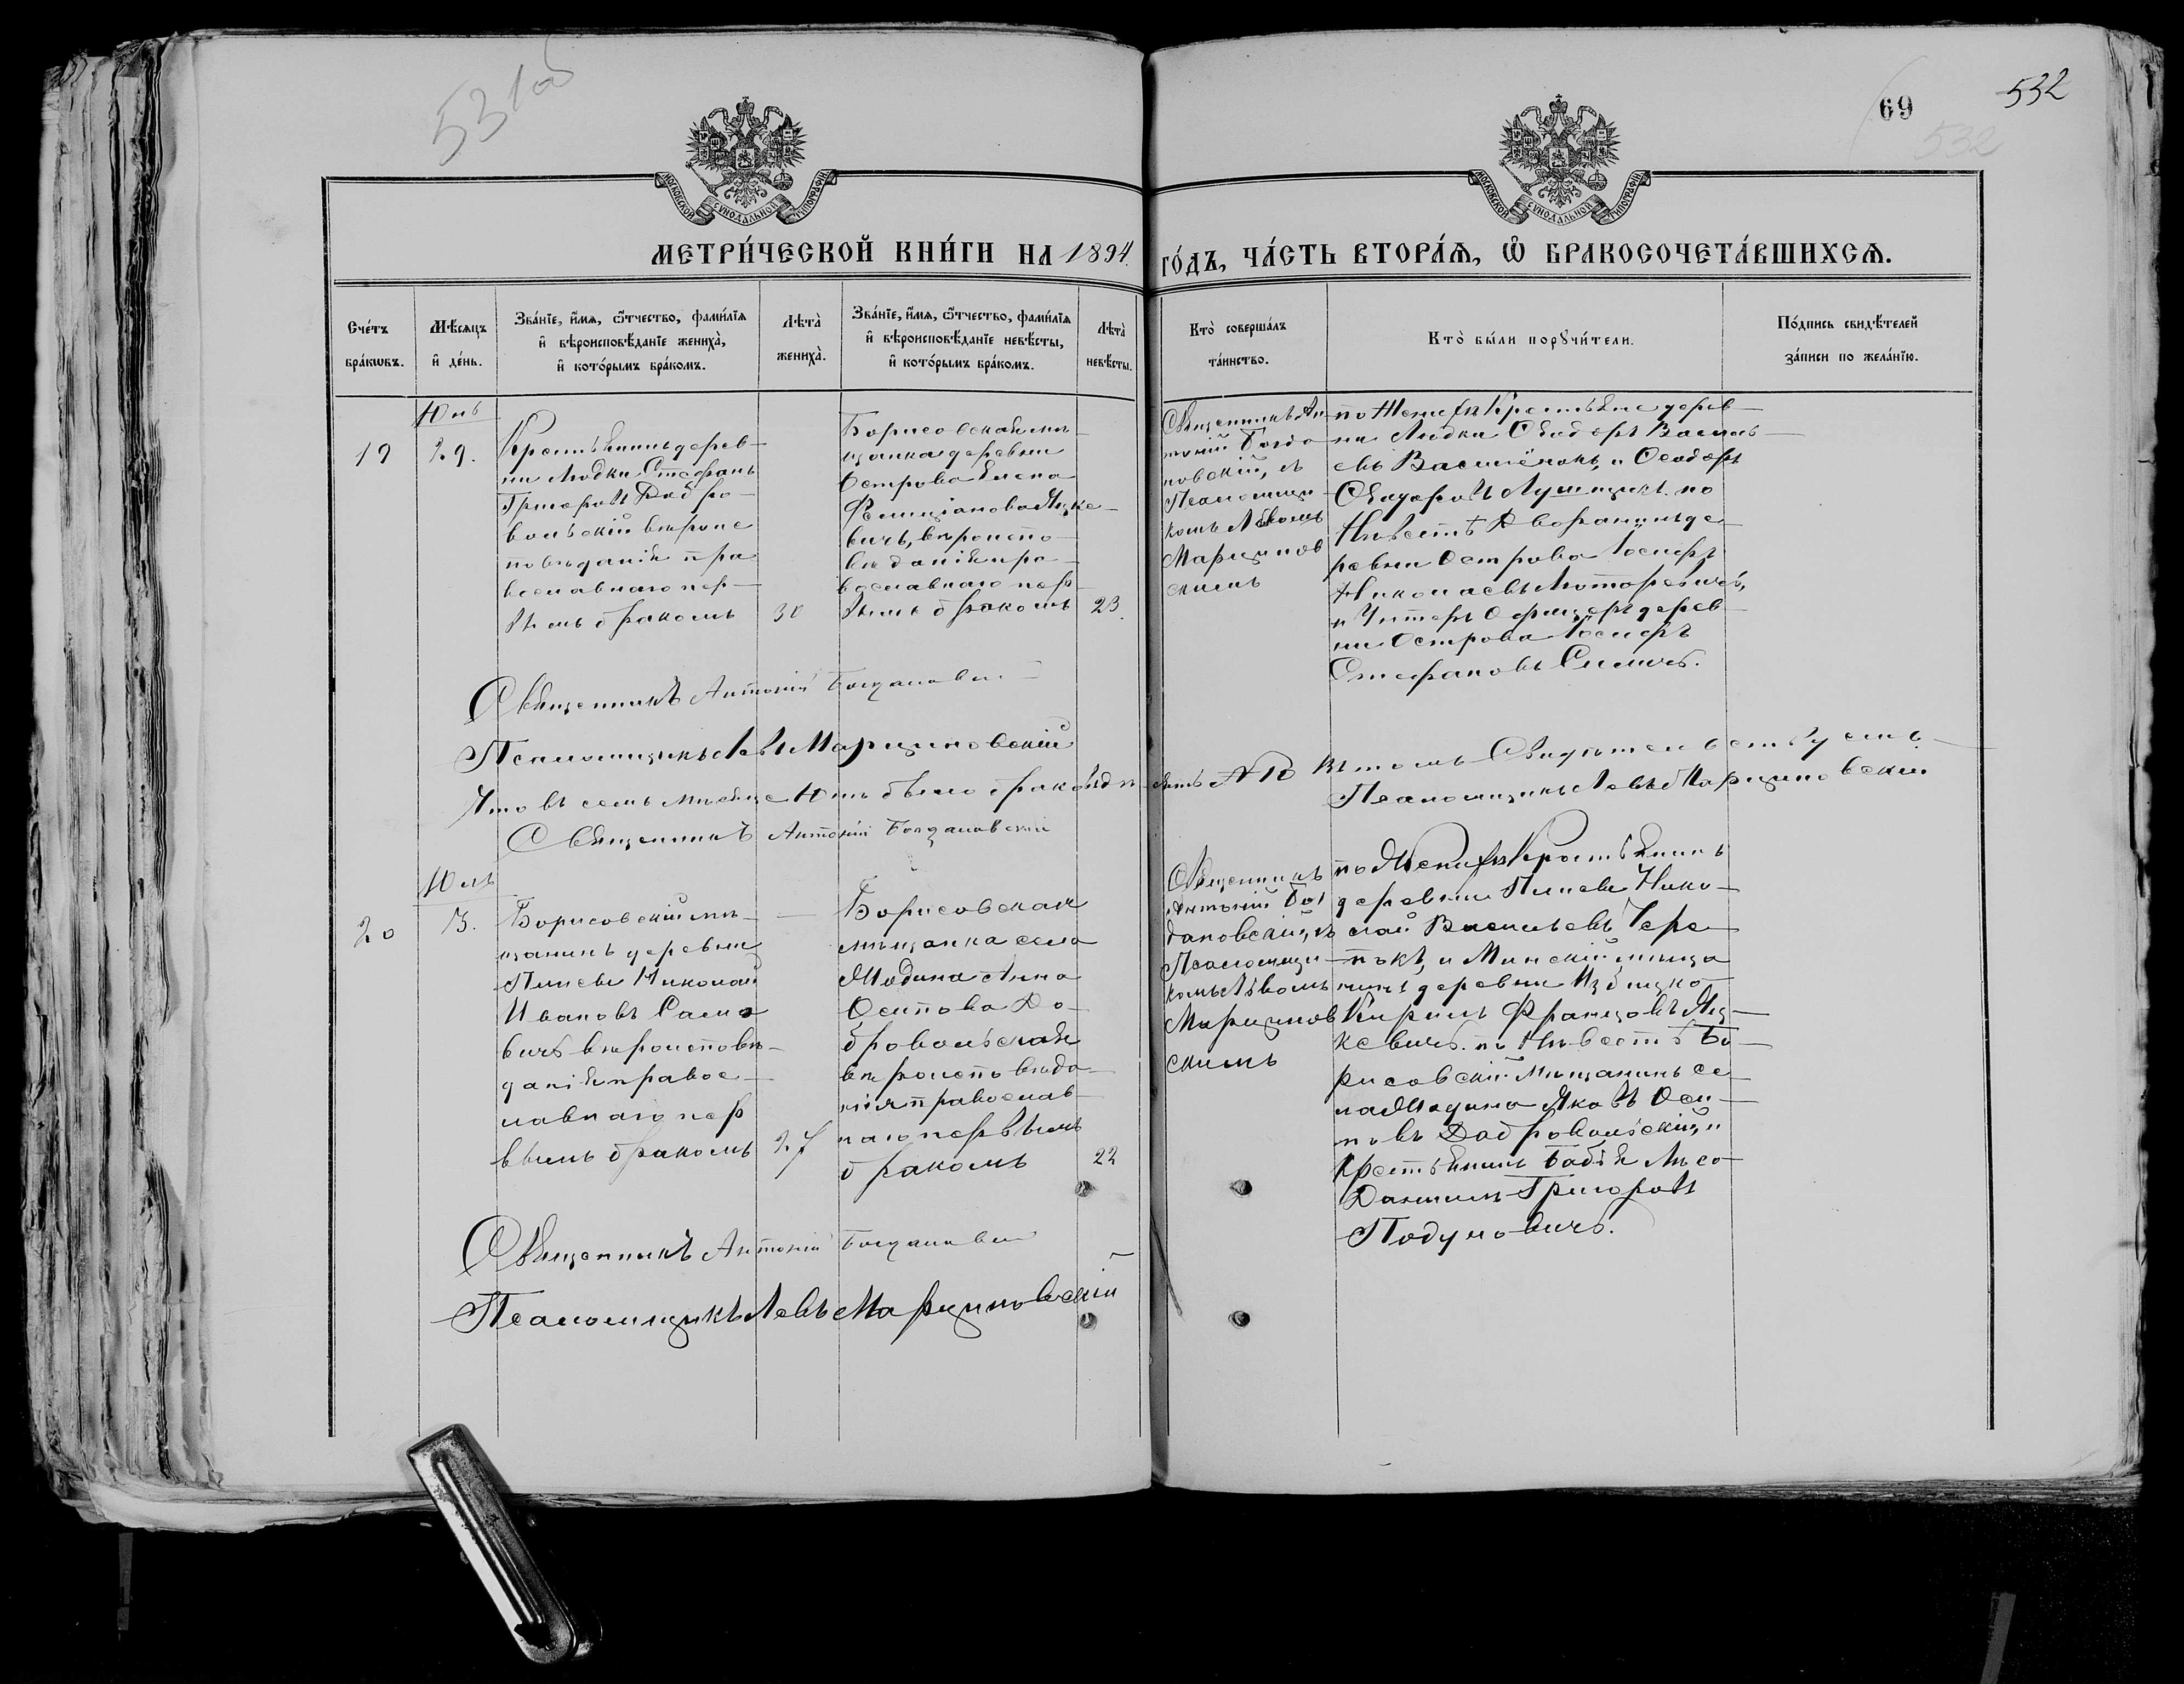 531об
69
532
532
МОСКОВСКОЙ СУНОДАЛЬНОЙ ТИПОГРАФІИ
МОСКОВСКОЙ СУНОДАЛЬНОЙ ТИПОГРАФІИ
МЕТРИ́ЧЕСКОЙ КНИ́ГИ НА 1894. ГО́ДЪ, ЧА́СТЬ ВТОРА́Ѧ, Ѽ БРАКОСОЧЕТА́ВШИХСѦ.
Сче́тъ бра́кѡвъ.
Мѣ́сѧцъ и҆ де́нь.
Зва́нїе, и҆́мѧ, ѻ҆́тчество, фами́лїѧ
и҆ вѣроисповѣ́данїе жениха̀,
и҆ кото́рымъ бра́комъ.
Лѣта̀ жениха̀.
Зва́нїе, и҆́мѧ, ѻ҆́тчество, фами́лїѧ
и҆ вѣроисповѣ́данїе невѣ́сты,
и҆ кото́рымъ бра́комъ.
Лѣта̀ невѣ́сты.
Кто̀ соверша́лъ та́инство.
Кто̀ бы́ли порꙋчи́тели.
По́дпись свидѣ́телей
за́писи по жела́нїю.
19
Юнь
29.
Крестьянинъ дерев-
ни Людки Стефанъ
Григоровъ Доб ро-
вольскій вѣроис
повѣданія пра
вославнаго пер-
вымъ бракомъ
30
Борисовская мѣ-
щанка деревни
Острова Елена
Фелиціанова Яцке-
вичъ, вѣроиспо-
вѣданія пра-
вославнаго пер-
вымъ бракомъ
23.
Священникъ Ан-
тоній Богда-
новскій, съ
Псаломщи-
комъ Львомъ
Марцинов
скимъ
по Женихѣ Крестьяне дерев-
ни Людки Ѳеодоръ Василь-
евъ Василёнокъ, и Ѳеодоръ
по
Невѣстѣ Дворянинъ де-
ревни Острова Іосифъ
Николаевъ Лютаревичъ,
и Унтеръ Офицеръ дерев-
ни Острова Іосифъ
Стефановъ Силичъ.
Священникъ Антоній Богдановск
Псаломщикъ Левъ Марциновскій
Что въ семъ мѣсяцѣ Юнѣ было браковъ № 10 въ томъ Свидѣтельствуемъ.
Священникъ Антоній Богдановскій
Псаломщикъ Левъ Марциновскій
20
Юль
3.
Борисовскій мѣ-
щанинъ деревни
Николай
Ивановъ Сама
вичъ вѣроисповѣ-
данія правос-
лавнаго пер
вымъ бракомъ
27
Борисовская
мѣщанка села
Жодина Анна
Осипова До-
бровольская
вѣроисповѣда-
нія православ-
наго первымъ
бракомъ
22
Священникъ
Антоній Бог
дановскій, съ
Псаломщи-
комъ Львомъ
Марцинов
скимъ
по Женихѣ Крестьянинъ
деревни Нико-
лай Васильевъ Чере-
покъ, и Минскій мѣща
нинъ деревни Избицко
Кирилъ Францовъ Яц-
кевичъ. по Невѣстѣ Бо-
рисовскій Мѣщанинъ се
ла Жодина Яковъ Оси-
повъ Добровольскій, и
Крестьянинъ Бабія Лѣса
Даниилъ Григоровъ
Подуновичъ.
Священникъ Антоній Богдановск
Псаломщикъ Левъ Марциновскій